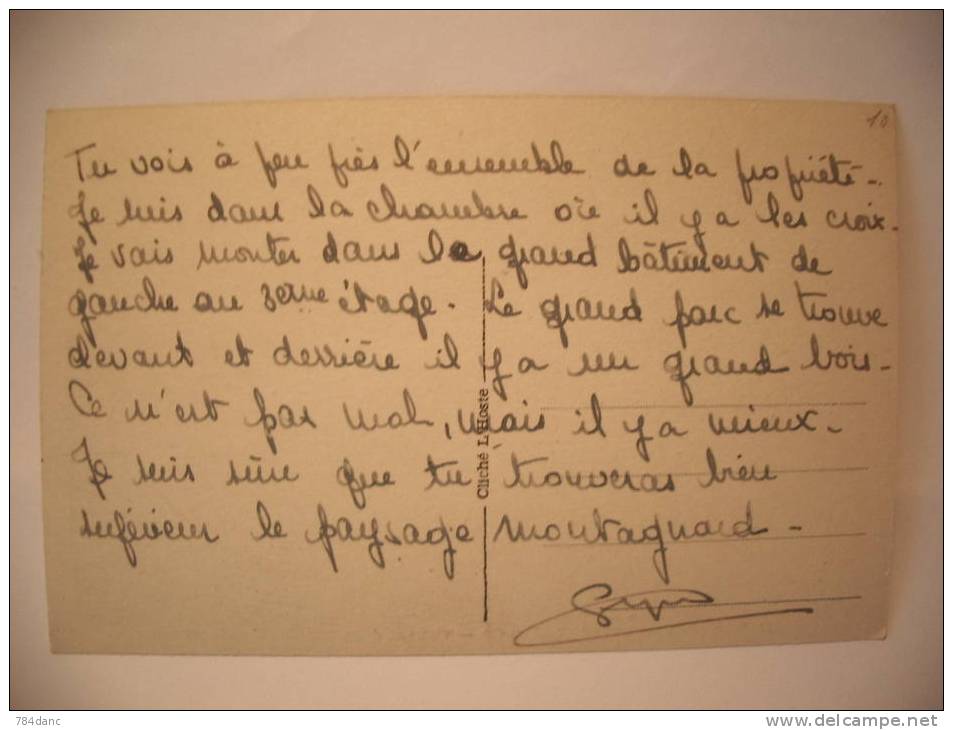 10
Tu vois à peu près l'ensemble de la propriété -
Je suis dans la chambre où il y a les croix -
Je vais monter dans le grand bâtiment de
gauche au 3eme étage. Le grand parc se trouve
devant et derrière il y a un grand bois -
Ce n'est pas mal, mais il y a mieux -
Je suis sûre que tu trouveras bien
inférieur le paysage montagnard -
Cliché L'Hoste
784danc
www.delcampe.net